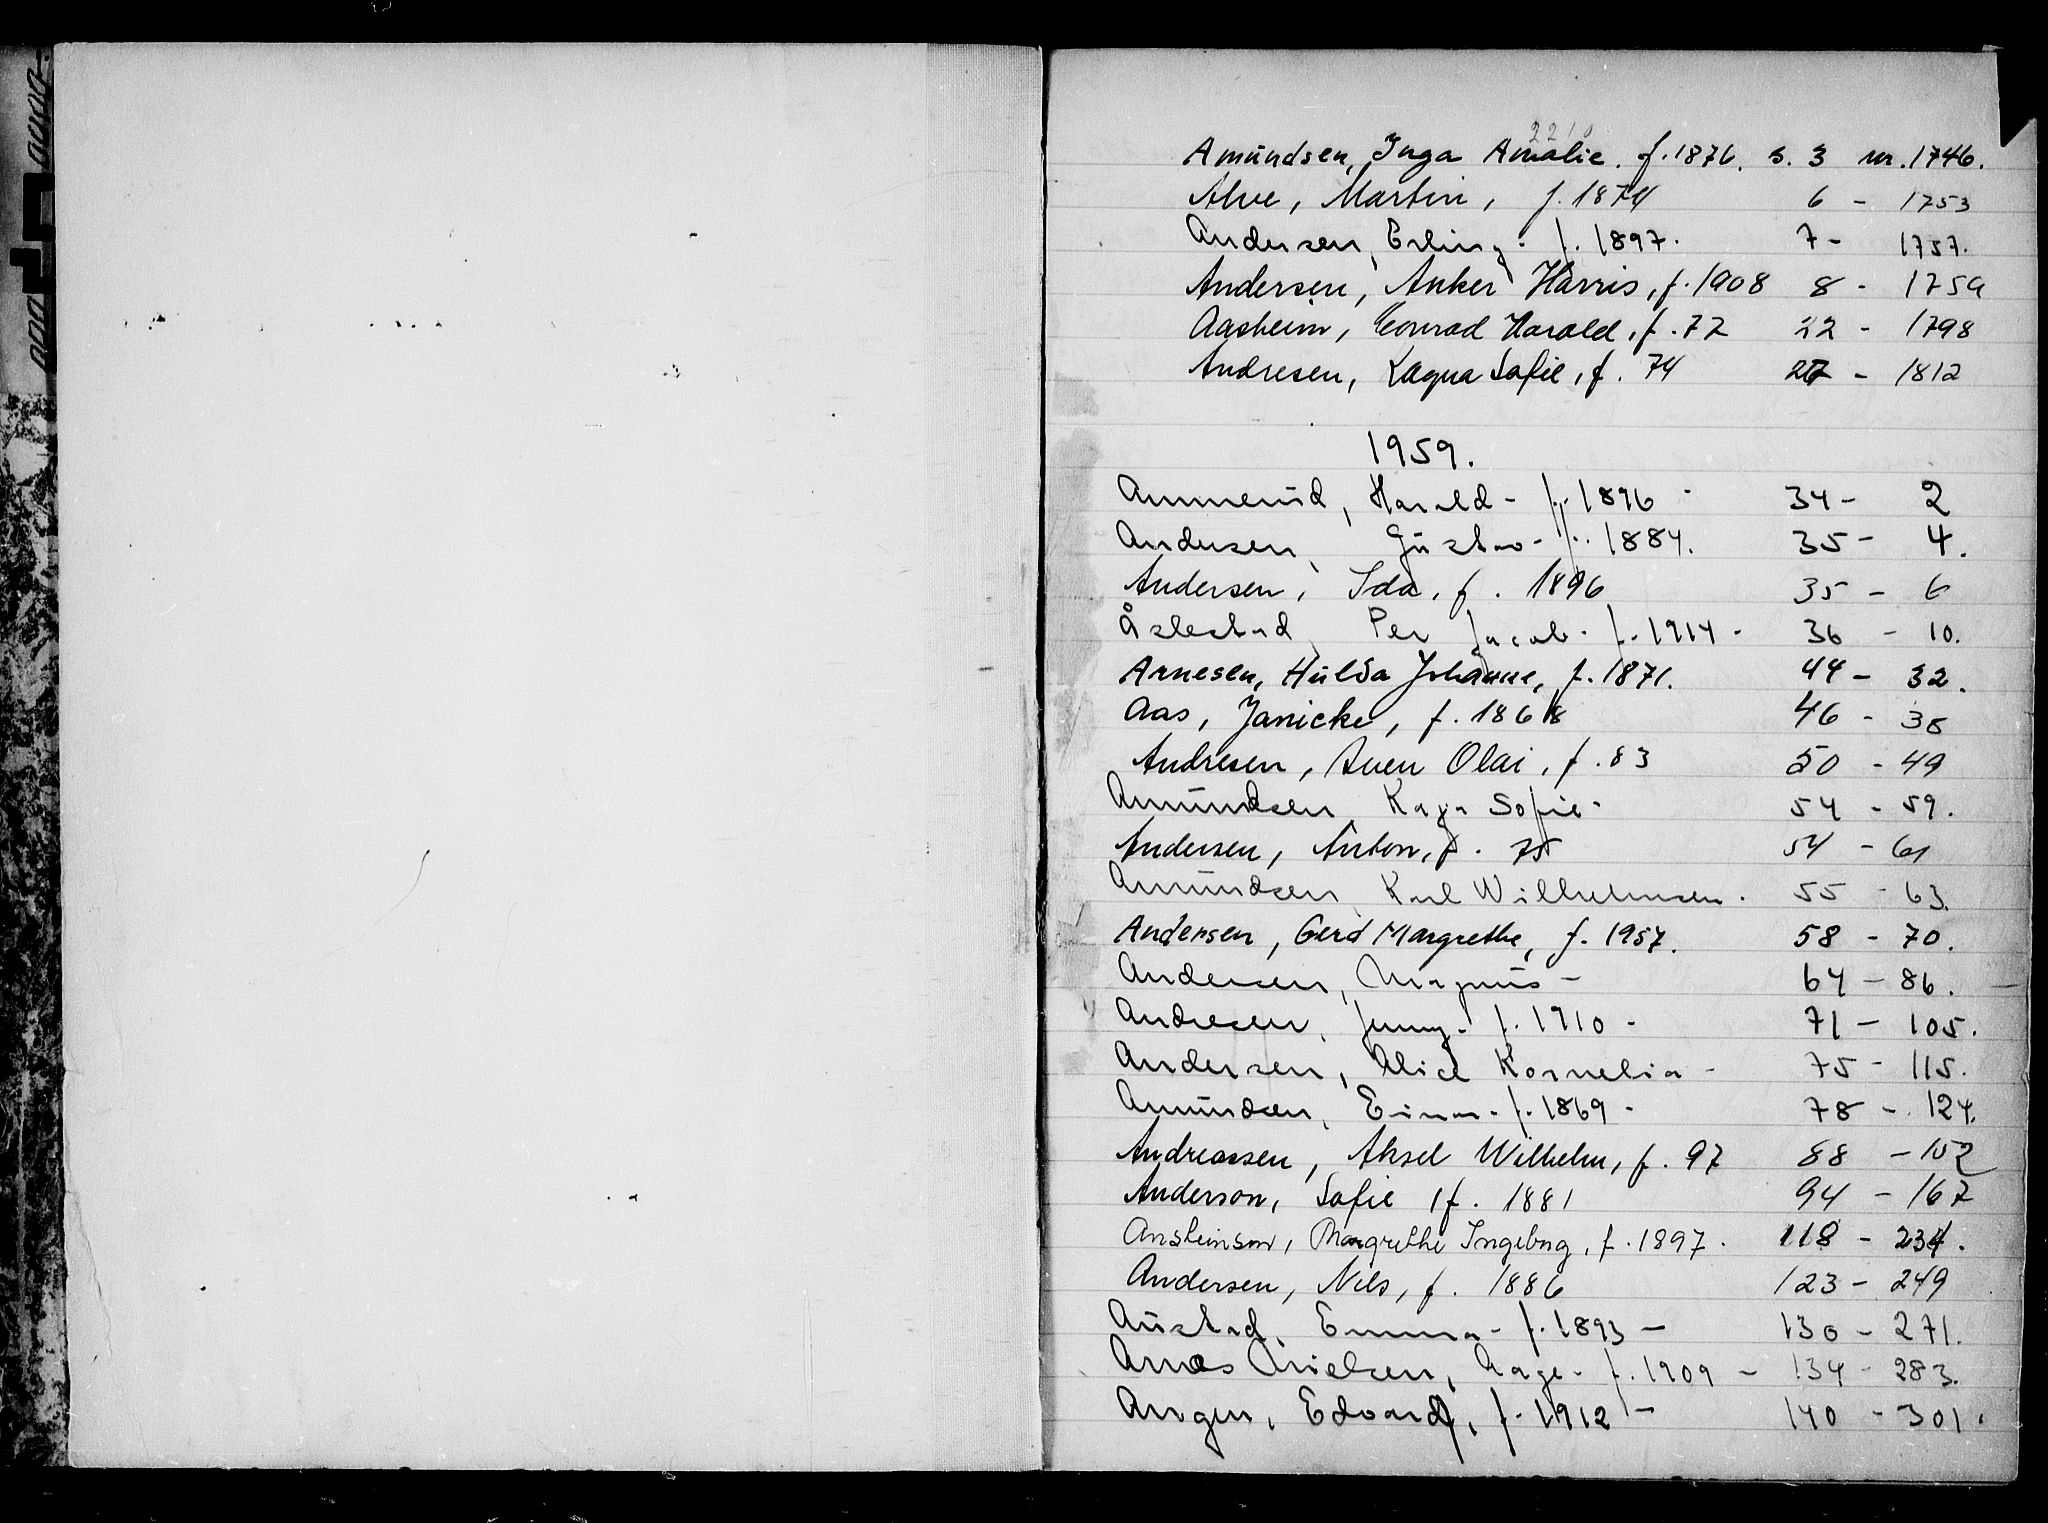 2210
Amundsen, Inga Amalie. f. 1876. s. 3 nr. 1746.
Alve, Martin, f. 1874 6 - 1753
Andersen, Erling - f. 1897. 7 - 1757.
Andersen, Anker Harris, f. 1908 8 - 1759
Aasheim, Conrad Harald, f. 72 22 - 1798
Andresen, Ragna Sofie, f. 74 27 - 1812
1959.
Ammerud, Harald - f. 1896 - 34 - 2
Andersen, Gustav - f. 1884. 35 - 4.
Andersen, Ida, f. 1896 35 - 6
Åslestad, Per Jacob - f. 1914 - 36 - 10.
Arnesen, Hulda Johanne, f. 1871. 44 - 32.
Aas, Janicke, f. 1868 46 - 38
Andresen, Sven Olai, f. 83 50 - 49
Amundsen, Kaja Sofie - 54 - 59.
Andersen, Anton, f. 75 54 - 61
Amundsen, Karl Wilhelmsen. 55 - 63.
Andersen, Gerd Margrethe, f. 1957. 58 - 70.
Andersen, Magnus - 64 - 86.
Andresen, Jenny - f. 1910 - 71 - 105.
Andersen, Alice Kornelia - 75 - 115.
Amundsen, Einar - f. 1869 - 78 - 124.
Andreassen, Aksel Wilhelm, f. 97 88 - 152
Anderson, Sofie, f. 1881 94 - 167
Ansteinson, Margrethe Ingeborg, f. 1897. 118 - 234.
Andersen, Nils, f. 1886 123 - 249
Austad, Emma - f. 1893 - 130 - 271.
Arnes Nielsen, Aage - f. 1909 - 134 - 283.
Angen, Edvard, f. 1912 - 140 - 301.